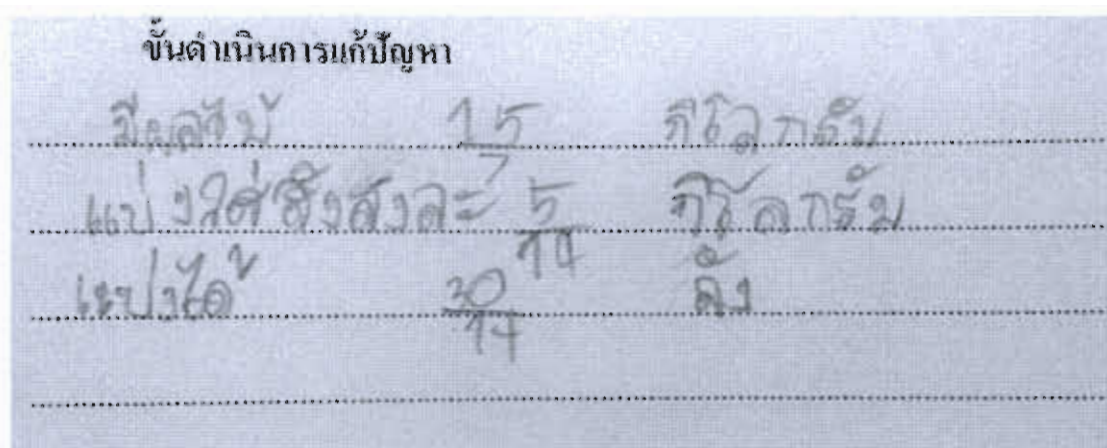 ขั้นดำเนินการแก้ปัญหา
มีผลไม้ 15/7 กิโลกรัม
แบ่งใส่ลังลังละ 5/14 กิโลกรัม
แบ่งได้ 30/14 ลัง